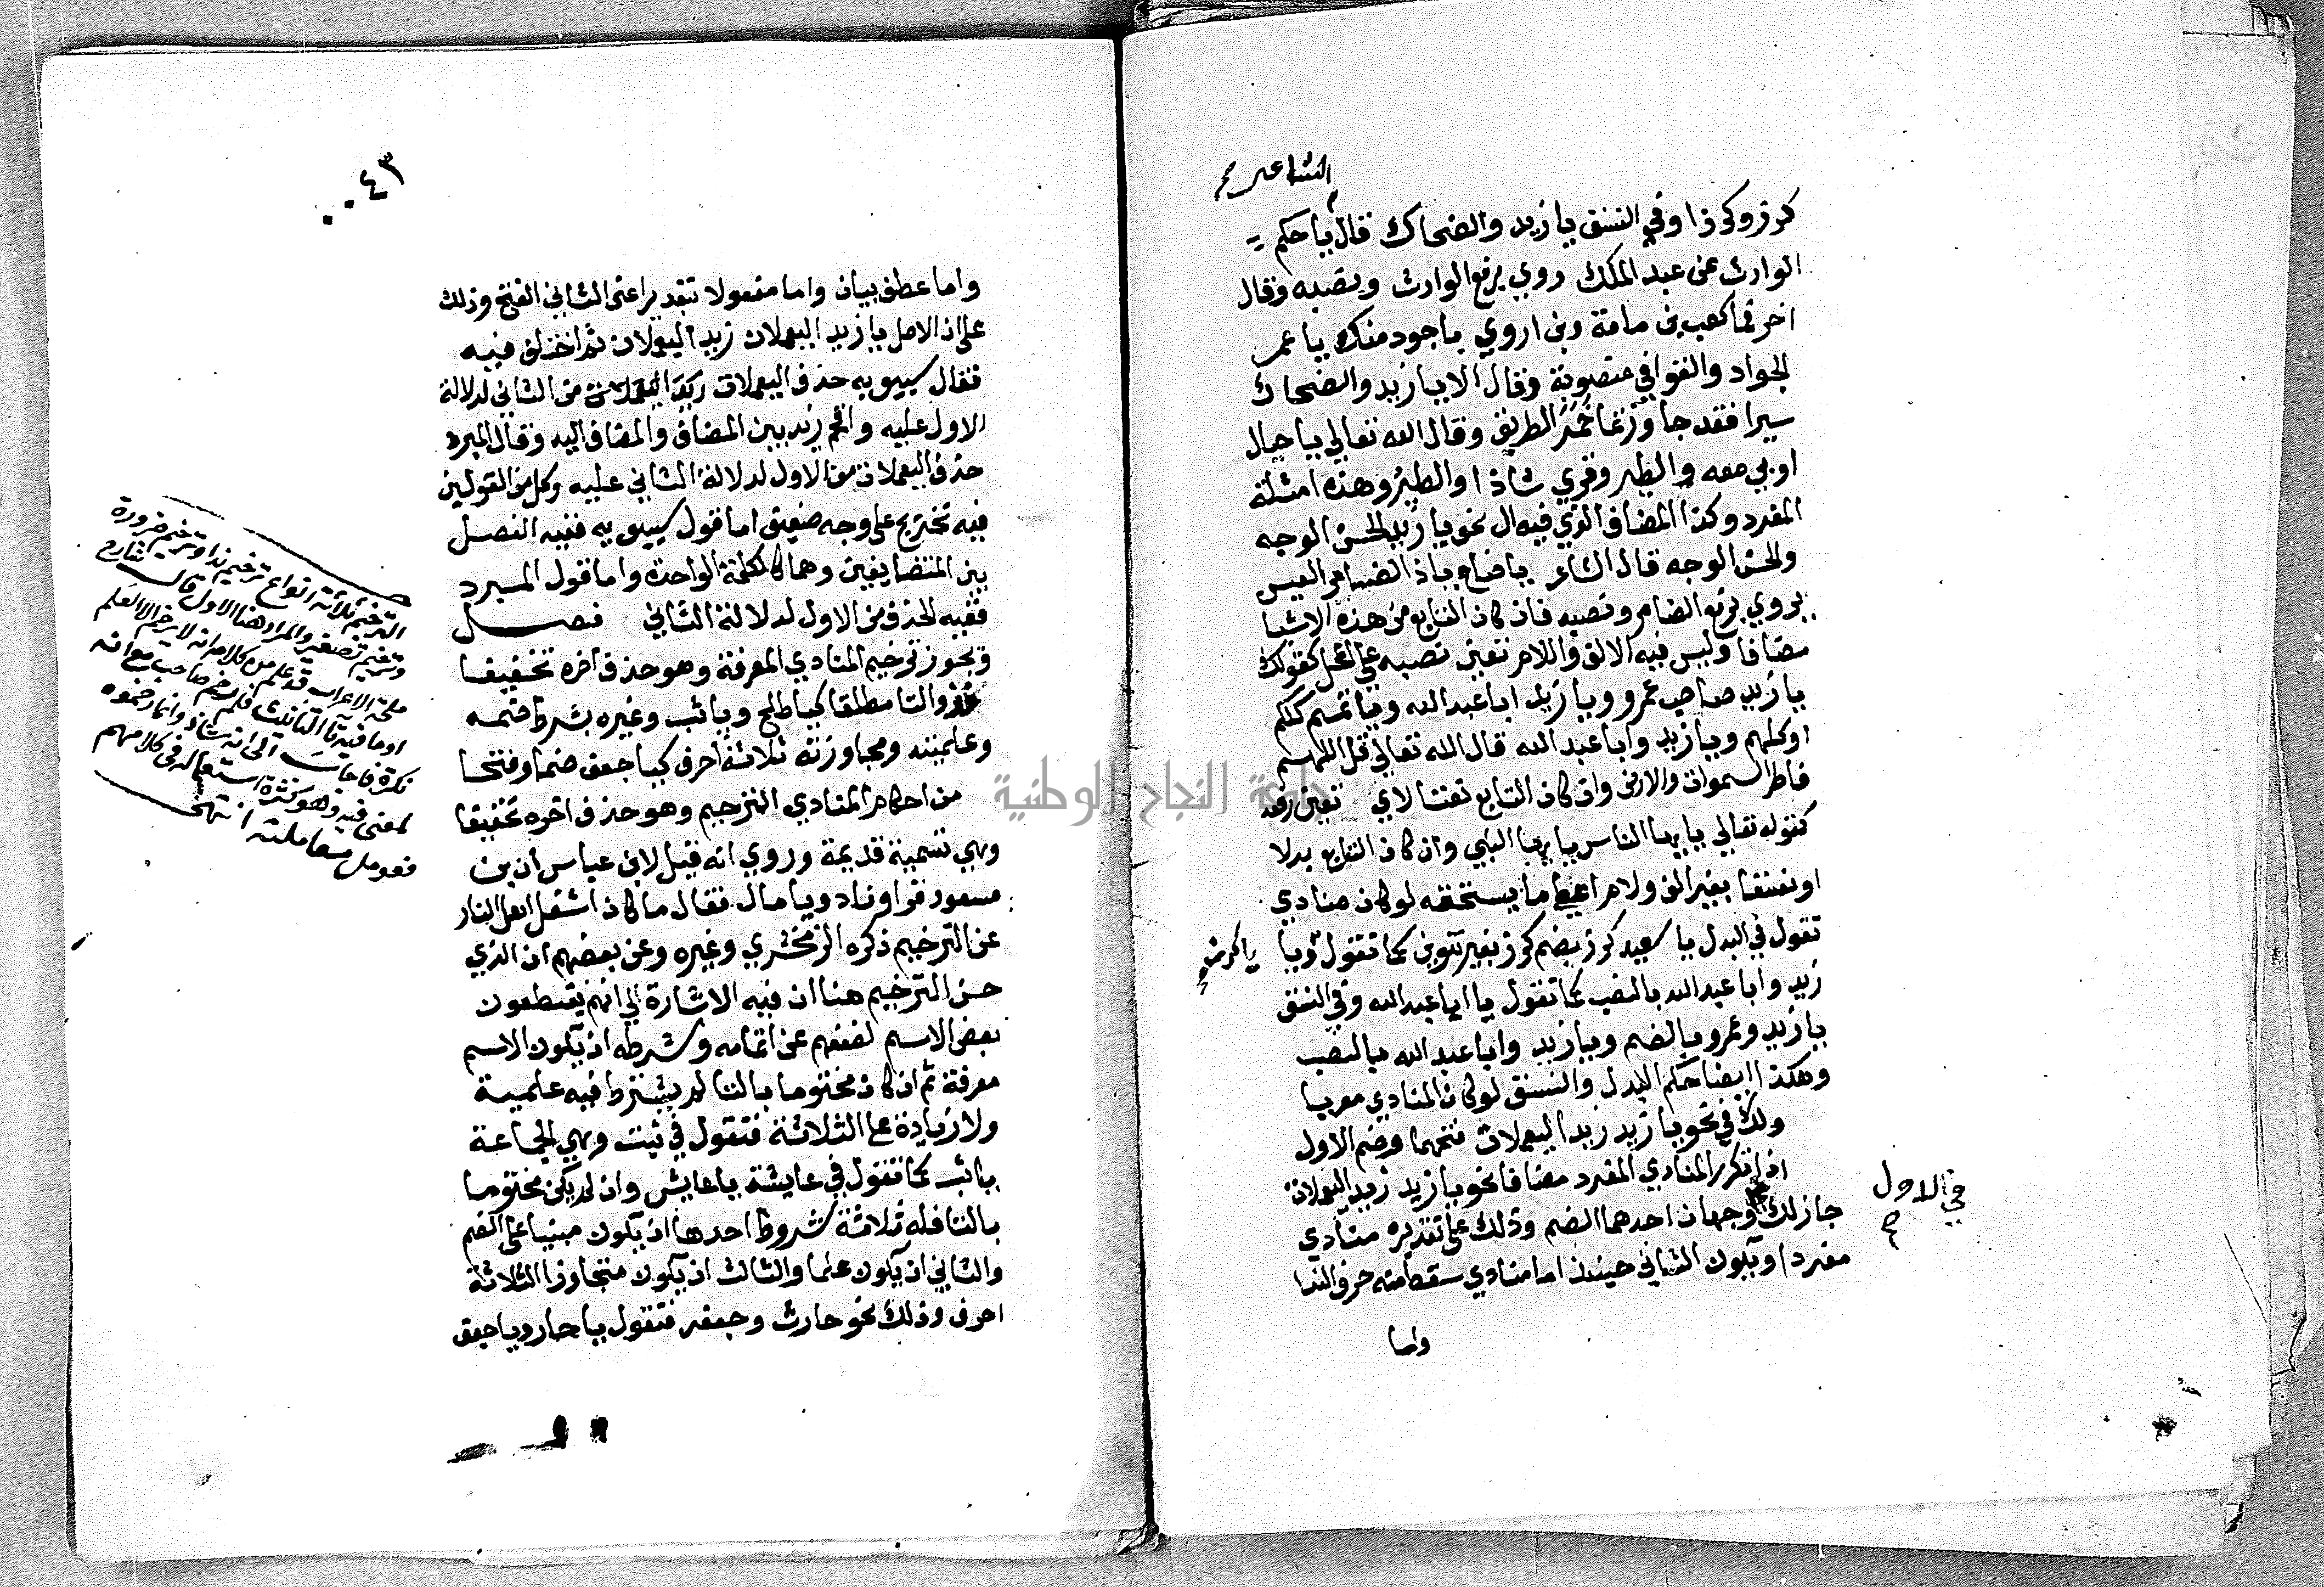 الشاعر صح
كرز وكرزا وفي النسق يا زيد والضحاك قال يا حكم
الوارث عن عبد الملك روي برفع الوارث ونصبه وقال
اخر فما كعب بن مامة وبن اروي باجود منك يا عمر
الجواد والقوافي منصوبة وقال الا يا زيد والضحاك
سيرا فقد جاوزتما خمر الطريق وقال الله تعالي يا جبال
اوبي معه والطير وقري شاذا والطير وهذه امثلة
المفرد وكذا المضاف الذي فيه ال نحو يا زيد الحسن الوجه
والحسن الوجه قال الشاعر يا صاح ياذا الضامر العيس
يروي برفع الضامر ونصبه فان كان التابع من هذه الاشيا
مضافا وليس فيه الالف واللام تعين نصبه علي المحل كقولك
يا زيد صاحب عمرو ويا زيد ابا عبد الله ويا تميم كلكم
او كلهم ويا زيد وابا عبد الله قال الله تعالي قل اللهم
فاطر السموات والارض وان كان التابع نعتا لاي تعين رفعه
كقوله تعالي يايها الناس يايها النبي وان كان التابع بدلا
او نسقا بغير الف ولام اعطي ما يستحقه لو كان منادي
تقول في البدل يا سعيد كرز بضم كرز بغير تنوين كما تقول ويا
يا كرز
زيد وابا عبد الله بالنصب كما تقول يا ابا عبد الله وفي النسق
يا زيد وعمرو بالضم ويا زيد وابا عبد الله بالنصب
وهكذا ايضا حكم البدل والنسق لو كان المنادي معربا
ولك في نحو يا زيد زيد اليعملات فتحهما وضم الاول
اذا تكرر المنادي المفرد مضافا نحو يا زيد زيد اليعملات
جاز لك وجهان احدهما الضم وذلك علي تقديره منادي
في الاول صح
مفردا ويكون الثاني حينئذ اما منادي سقط منه حرف الندا
واما
٠٠٤٣
واما عطف بيان واما مفعولا بتقدير اعني الثاني الفتح وذلك
علي ان الاصل يا زيد اليعملات زيد اليعملات ثم اختلف فيه
فقال سيبويه حذف اليعملات من الثاني لدلالة
الاول عليه واقحم زيد بين المضاف والمضاف اليه وقال المبرد
حذف اليعملات من الاول لدلالة الثاني عليه وكل من القولين
فيه تخريج علي وجه ضعيف اما قول سيبويه ففيه الفصل
بين المتضايفين وهما كالكلمة الواحدة واما قول المبرد
ففيه الحذف من الاول لدلالة الثاني فصل
ويجوز ترخيم المنادي المعرفة وهو حذف اخره تخفيفا
فذو التا مطلقا كيا طلح ويا ثب وغيره بشرط ضمه
وعلميته ومجاوزته ثلاثة احرف كيا جعف ضما وفتحا
من احكام المنادي الترخيم وهو حذف اخره تخفيفا
وهي تسمية قديمة وروي انه قيل لابن عباس ان بن
مسعود قرا ونادو يا مال فقال ما كان اشغل اهل النار
عن الترخيم ذكره الزمخشري وغيره وعن بعضهم ان الذي
حسن الترخيم هنا ان فيه الاشارة الي انهم يقتطعون
بعض الاسم لضعفهم عن اتمامه وشرطه ان يكون الاسم
معرفة ثم ان كان مختوما بالتا لم يشترط فيه علمية
ولا زيادة علي الثلاثة فتقول في ثبت وهي الجماعة
يا ثب كما تقول في عايشة يا عايش وان لم يكن مختوما
بالتا فله ثلاثة شروط احدها ان يكون مبنيا علي الضم
والثاني ان يكون علما والثالث ان يكون متجاوزا الثلاثة
احرف وذلك نحو حارث وجعفر فتقول يا حار ويا جعف
الترخيم ثلاثة انواع ترخيم ندا وترخيم ضرورة
وترخيم تصغير والمراد هنا الاول قال شارح
ملحة الاعراب قد علم من كلامه انه لا يرخم الا العلم
او ما فيه تا التانيث فلم رخم صاحب مع انه
نكرة فاجاب الي انه شاذ وانما رخموه
لمعني فيه وهو كثرة استعماله في كلامهم
فعومل معاملته انتهي
جامعة النجاح الوطنية